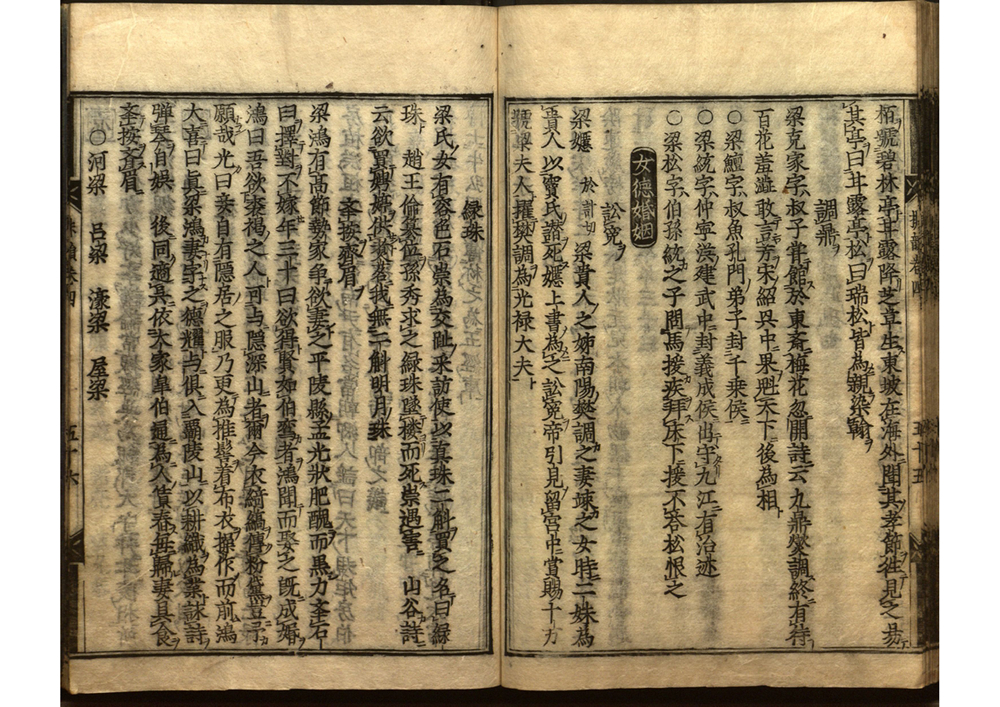 栢號碧林亭甘露降芝草生東坡在海外聞其孝節徃見之易
其亭曰甘露亭松曰瑞松皆為親染翰
調鼎
梁克家字叔子甞館於東斎梅花忽開詩云九鼎爕調終有待
百花羞澁敢言芳宋紹興中果魁天下後為相
〇梁鱣字叔魚孔門弟子封千乗侯
〇梁統字仲寧漢建武中封義成侯出守九江有治迹
〇梁松字伯孫統之子問馬援疾拜床下援不荅松恨之
女德婚姻
訟寃
梁嫕 於計切 梁貴人之姊南陽樊調之妻竦之女時二姝為
貴人以竇氏譖死嫕上書為之訟寃帝引見留宮中賞賜千万
號梁夫人擢樊調為光禄大夫
緑珠
梁氏女有容色石崇為交趾采訪使以真珠二斛買之名曰緑
珠 趙王倫簒位孫秀求之緑珠墜楼而死崇遇害 山谷詩
云欲買娉婷供煑茗我無二斛明月珠
夆按齊眉
梁鴻有高節勢家争欲妻之平陵縣孟光狀肥醜而黒力夆石
曰擇對不嫁年三十曰欲得賢如伯鸾者鴻聞而娶之既成婚
鴻曰吾欲裘褐之人可与隠深山者爾今衣綺縞傅粉黛豈予
願哉光曰妾自有隠居之服乃更為推髻着布衣操作而前鴻
大喜曰真梁鴻妻字之德耀与俱入覇陵山以耕織為業詠詩
弾琴自娯 後同適呉依大家皐伯通為人賃舂毎歸妻具食
夆按斉眉
〇河梁 呂梁 濠梁 屋梁
五十五
五十六